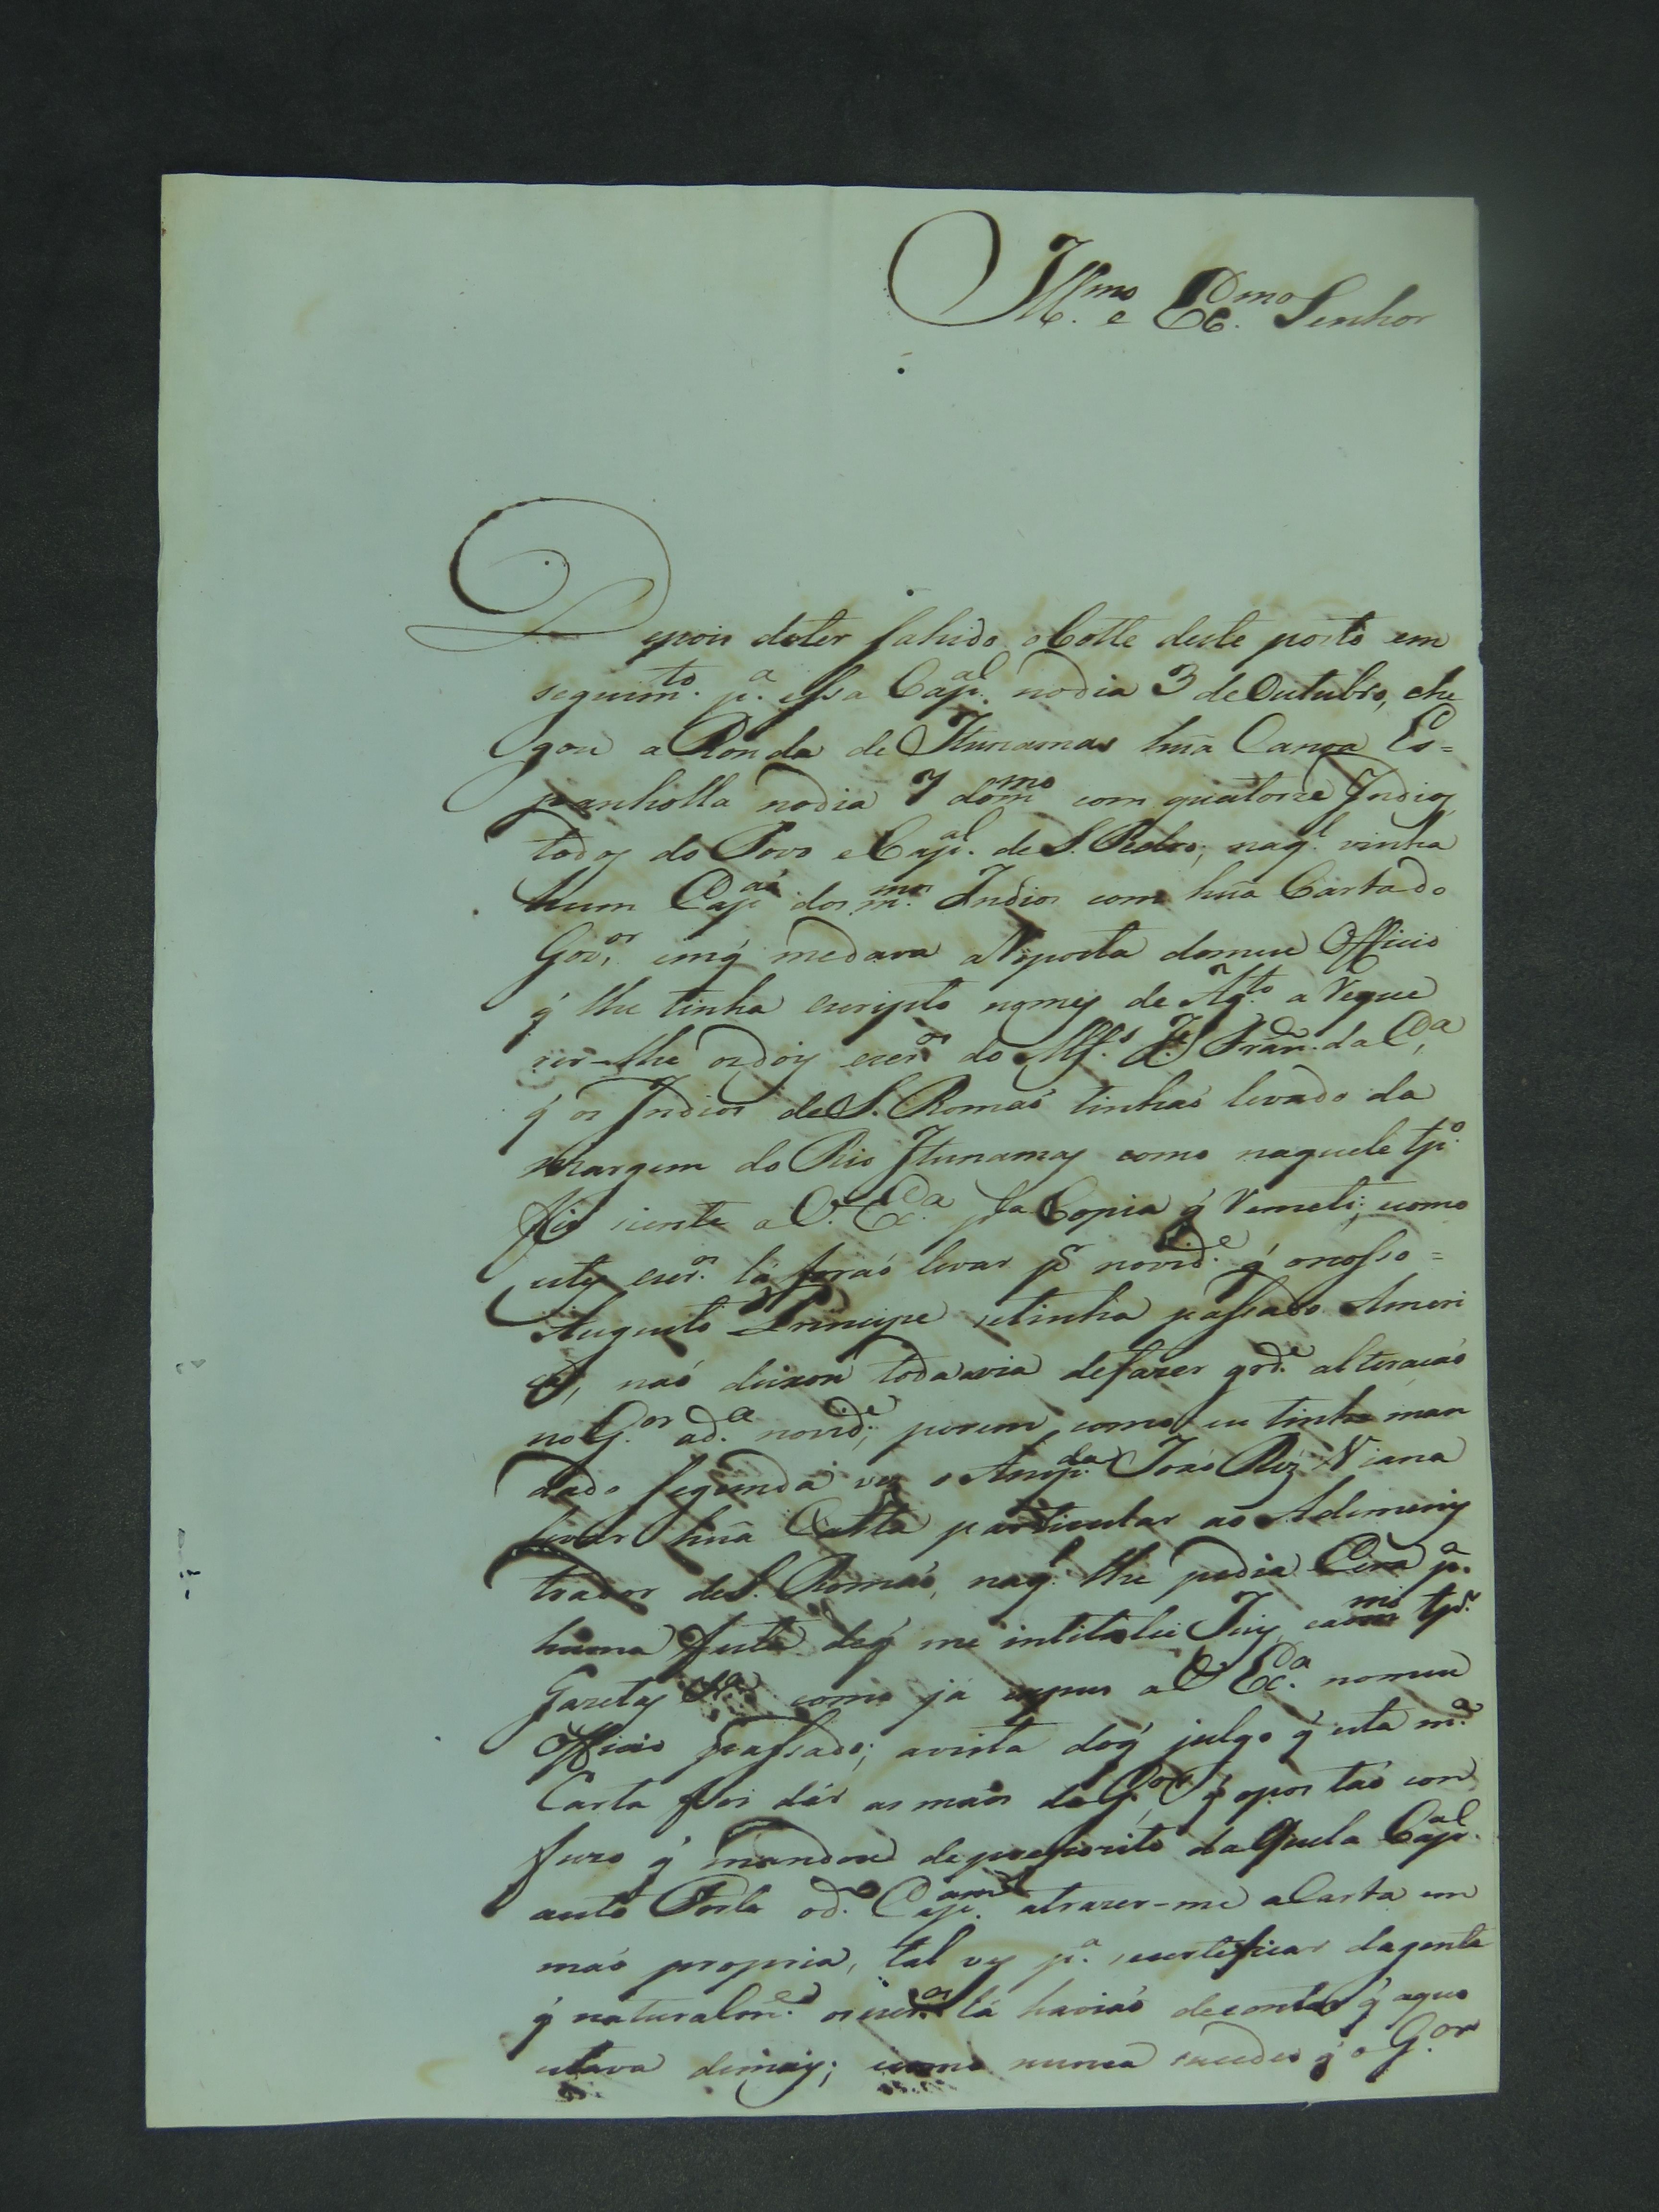 Illmo. e Exmo. Senhor
Depois deter sahido o Botte deste porto em
seguimto. pa. essa Capal. nodia 3 de Outubro, che
gou a Ronda de Itunamas hũa Canoa Es=
panholla nodia 7 dommo com quatorze Indios
todos do Povo e Capal. de S. Pedro; naql. vinha
hum Capam dos mmos. Indios com hũa Carta do
Govor. emq̃ medava aResposta domeu Officio
q̃ lhe tinha escripto nomes de Agto. a Reque
rer-lhe os dois escros. do Alfs. Je. Fran. da Ca.,
q̃ os Indios de S. Romaõ tinhaõ levado da
margem do Rio Itunamas como naquele tpo.
fis siente a V. Exa. pla Copia q̃ Remeti; como
estes escros. lá foraõ levar por novide. q̃ onosso=
Augusto Principe setinha passado Ameri
ca, naõ deixou todavia defazer grde. alteraçaõ
no Gor. ada. novide; porem como eu tinha man
dado segunda ves o Anspda. Joaõ Roiz Viana
levar hũa Carta particular ao Ademinis
trador de S. Romaõ, naql. lhe pedia Cera pa.
huma festa deq̃ me intitolei Juis, eaomo tpo.
Gazetas Va. como já expus a V. Exa. nomeu
Officio passado; avista doq̃ julgo q̃ esta ma.
Carta foi dár as maõs do Gor. q̃ opos taõ con
fuzo q̃ mandou depreposito daquela Capal.
aeste Porto od. Capam. atrazer-me aCarta em
maõ propria, tal ves pa. secerteficar dagente
q̃ naturalme. os escros. lá haviaõ decontar q̃ aqui
estava demais; como nunca sucedeo q̃ o Gor.